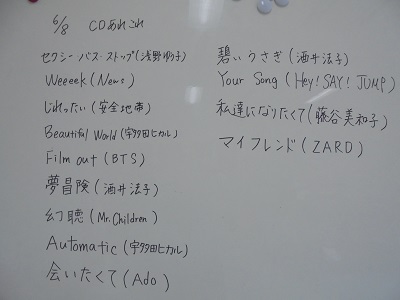 6/8 CDあれこれ
セクシー・バス・ストップ(浅野ゆう子)
Weeeek (News)
じれったい(安全地帯)
Beautiful World (宇多田ヒカル)
Film out (BTS)
夢冒険(酒井法子)
幻聴(Mr.Children)
Automatic(宇多田ヒカル)
会いたくて(Ado)
碧いうさぎ(酒井法子)
Your Song (Hey! SAY! JUMP)
私達になりたくて(藤谷美和子)
マイフレンド(ZARD)